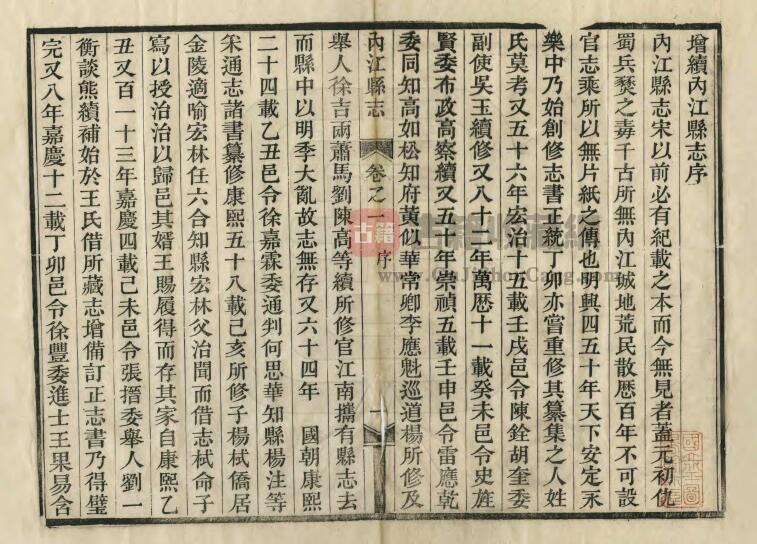 增續內江縣志序
內江縣志宋以前必有紀載之本而今無見者蓋元初仇
蜀兵燹之毒千古所無內江城地荒民散歷百年不可設
官志乘所以無片紙之傳也明興四五十年天下安定永
樂中乃始創修志書正統丁卯亦嘗重修其纂集之人姓
氏莫考又五十六年宏治十五載壬戌邑令陳銓胡奎委
副使吳玉續修又八十二年萬歷十一載癸未邑令史旌
賢委布政高察續又五十年崇禎五載壬申邑令雷應乾
委同知高如松知府黃似華常卿李應魁巡道楊所修及
內江縣志 卷之一 序 一
舉人徐吉雨蕭馬劉陳高等續所修官江南攜有縣志去
而縣中以明季大亂故志無存又六十四年 國朝康熙
二十四載乙丑邑令徐嘉霖委通判何思華知縣楊注等
采通志諸書纂修康熙五十八載己亥所修子楊栻僑居
金陵適喻宏林任六合知縣宏林父治聞而借志栻命子
寫以授治治以歸邑其婿王賜履得而存其家自康熙乙
丑又百一十三年嘉慶四載己未邑令張搢委舉人劉一
衡談熊續補始於王氏借所藏志增備訂正志書乃得璧
完又八年嘉慶十二載丁卯邑令徐豐委進士王果易含
古籍